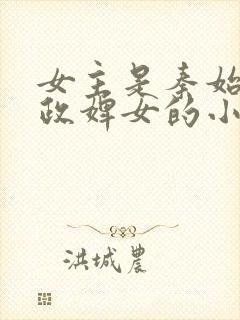 女主是秦始
政婢女的小
洪城农